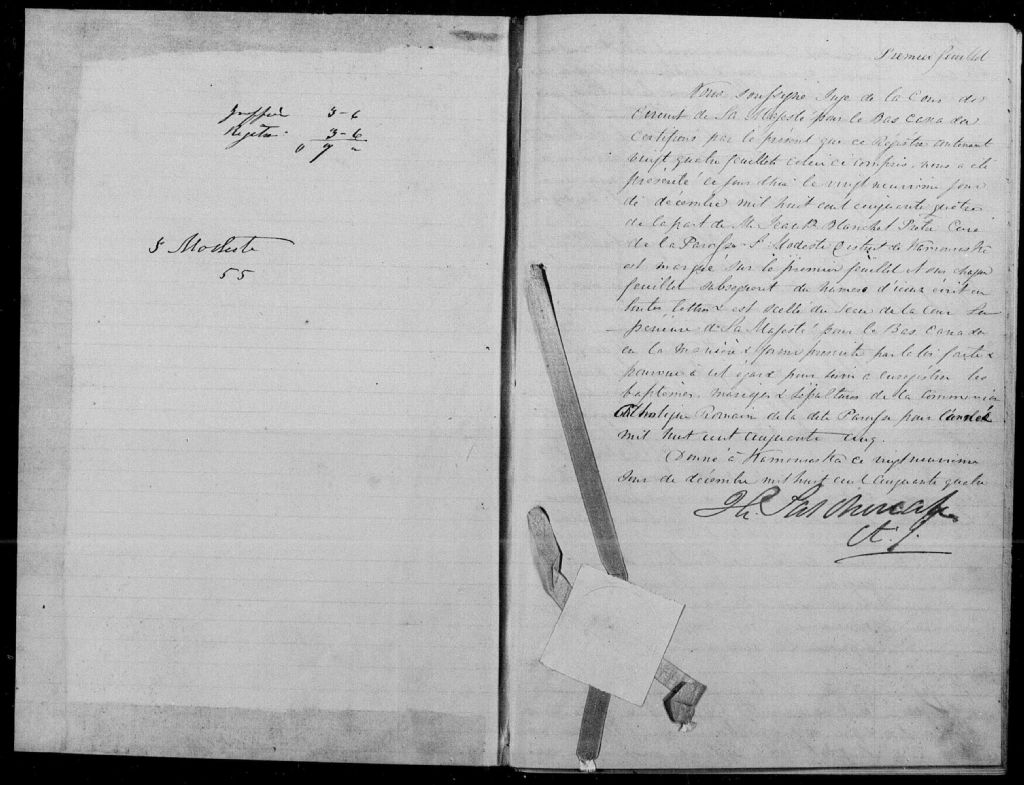 Greffier 3-6
Registre 3-6
" 7 "
St Modeste
55
Premier feuillet
Nous soussigné Juge de la Cour de
Circuit de Sa Majesté pour le Bas Canada
Certifions par le présent que ce Régistre contenant
vingt quatre feuillets celui ci compris, nous a été
présenté ce jour d'hui le vingt neuvième jour
de décembre mil huit cent cinquante quatre
de la part de Mr Jean B. Blanchet Prêtre Curé
de la Paroisse St Modeste District de Kamouraska
est marqué sur le premier feuillet et sur chaque
feuillet subséquent du numéro d'iceux écrit en
toutes lettres & est scellé du sceau de la Cour Su-
périeure de Sa Majesté pour le Bas Canada
en la manière & forme prescrite par la loi faite &
pourvue à cet égard pour servir à enregistrer les
baptêmes mariages & sépultures de la Communion
Catholique Romaine de la dite Paroisse pour l'année
mil huit cent cinquante cinq.
Donné à Kamouraska ce vingt neuvième
jour de décembre mil huit cent cinquante quatre